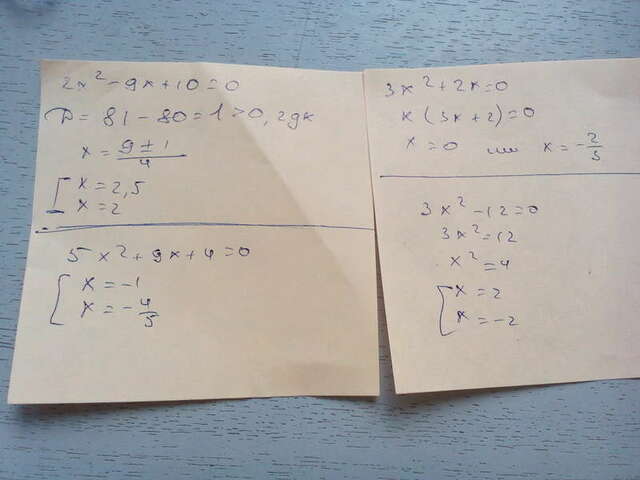 2x² - 9x + 10 = 0
D = 81 - 80 = 1 > 0, 2 дк
x = (9 ± 1)/4
[ x = 2,5
x = 2
5x² + 9x + 4 = 0
[ x = -1
x = -4/5
3x² + 2x = 0
x (3x + 2) = 0
x = 0 или x = -2/3
3x² - 12 = 0
3x² = 12
x² = 4
[ x = 2
x = -2